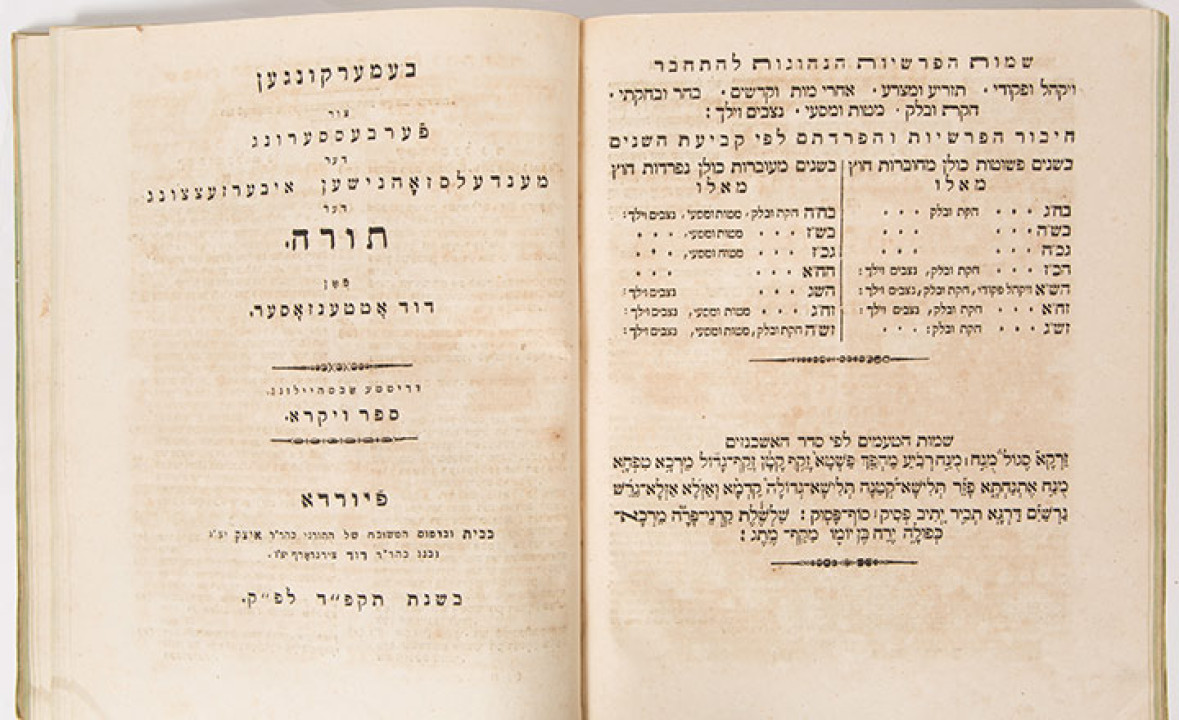 שמות הפרשיות הנהוגות להתחבר
ויקהל ופקודי · תזריע ומצרע · אחרי מות וקדשים · בהר ובחקתי ·
חקת ובלק · מטות ומסעי · נצבים וילך :
חיבור הפרשיות והפרדתם לפי קביעת השנים
בשנים פשוטות כולן מחוברות חוץ
מאלו
בח״ג · · · חקת ובלק · · ·
בש״ה · · · · · ·
גכ״ה · · · · · ·
הכ״ז · · · חקת ובלק, נצבים וילך :
הש״א ויקהל פקודי, חקת ובלק, נצבים וילך :
זח״א · · · חקת ובלק, נצבים וילך :
זש״ג · · · חקת ובלק : · · ·
בשנים מעוברות כולן נפרדות חוץ
מאלו
בח״ה חקת ובלק, מטות ומסעי, נצבים וילך :
בש״ז · · · מטות ומסעי, · · ·
גכ״ז · · · מטות ומסעי, · · ·
הח״א · · · · · ·
השג · · · נצבים וילך :
זח״ג · · · מטות ומסעי, נצבים וילך :
זש״ה חקת ובלק, מטות ומסעי, נצבים וילך :
שמות הטעמים לפי סדר האשכנזים
זַרְקָא סְגוֹל מֻנַּח׀ מֻנַּח רְבִיעַ מַהְפַּךְ פַּשְׁטָא זָקֵף קָטֹן זָקֵף־גָּדוֹל מֵרְכָא טִפְחָא
מֻנַּח אֶתְנַחְתָּא פָּזֵר תְּלִישָׁא־קְטַנָּה תְּלִישָׁא־גְדוֹלָה קַדְמָא וְאַזְלָא אַזְלָא־גֵּרֵשׁ
גֵּרְשַׁיִם דַּרְגָּא תְּבִיר יְתִיב פְּסִיק׀ סוֹף־פָּסוּק : שַׁלְשֶׁלֶת קַרְנֵי־פָרָה מֵרְכָא־
כְפוּלָה יֶרַח בֶּן יוֹמוֹ מַקַּף־ מֶתֶג :
בעמערקונגען
צור
פֿערבעססערונג
דער
מענדעלסזאָהנישען איבערזעצצונג
דער
תורה.
פֿאָן
דוד אָטטענזאָסער.
דריטטע אבטהיילונג.
ספר ויקרא.
פֿיורדא
בבית ובדפוס המשובח של התורני כהר״ר איצק יצ״ו
נכנו כהר״ר דוד צירנדארף יצ״ו.
בשנת תקפ״ד לפ״ק.